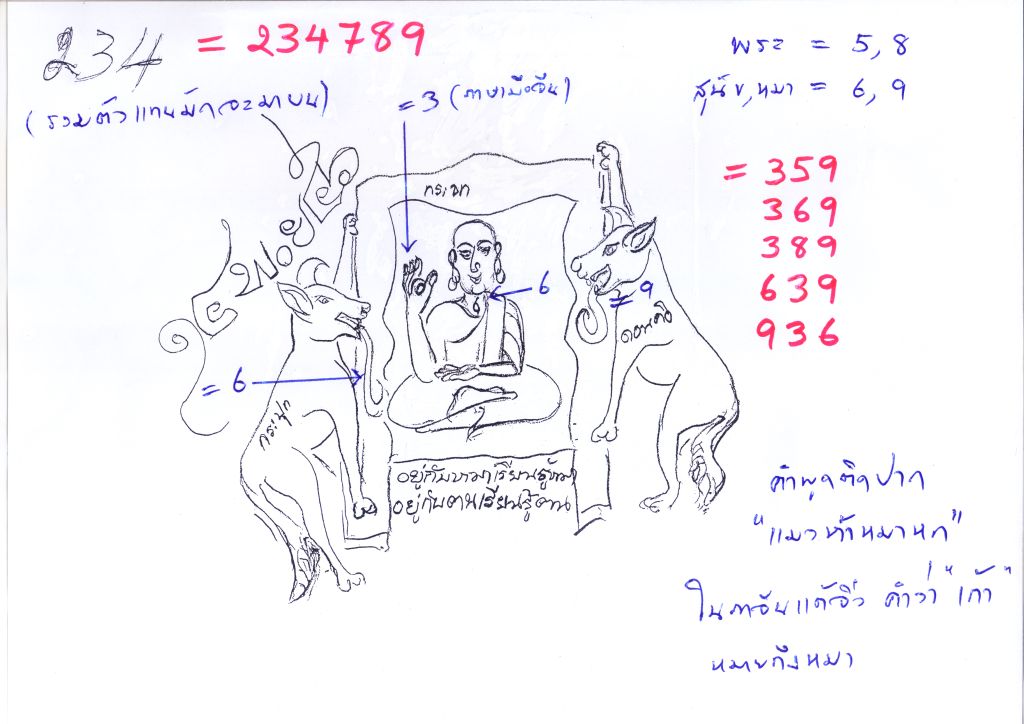 234 = 234789
พระ = 5, 8
สุนัข, หมา = 6, 9
(รวมตัวแทนมักจะมาบน)
= 3 (ภาษามือจีน)
= 359
369
389
639
936
กระจก
6
= 9
= 6
กระปุก
อยู่กับหมาเรียนรู้หมา
อยู่กับคนเรียนรู้คน
คำพูดติดปาก
"แมวห้าหมาหก"
ในภาจีนแต้จิ๋ว คำว่า "เก้า"
หมายถึงหมา